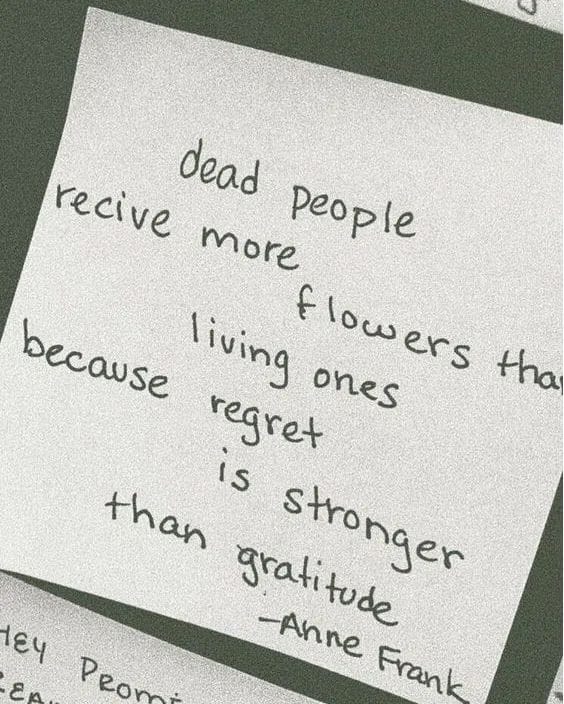 dead people
recive more
flowers than
living ones
because regret
is stronger
than gratitude
-Anne Frank
HEY